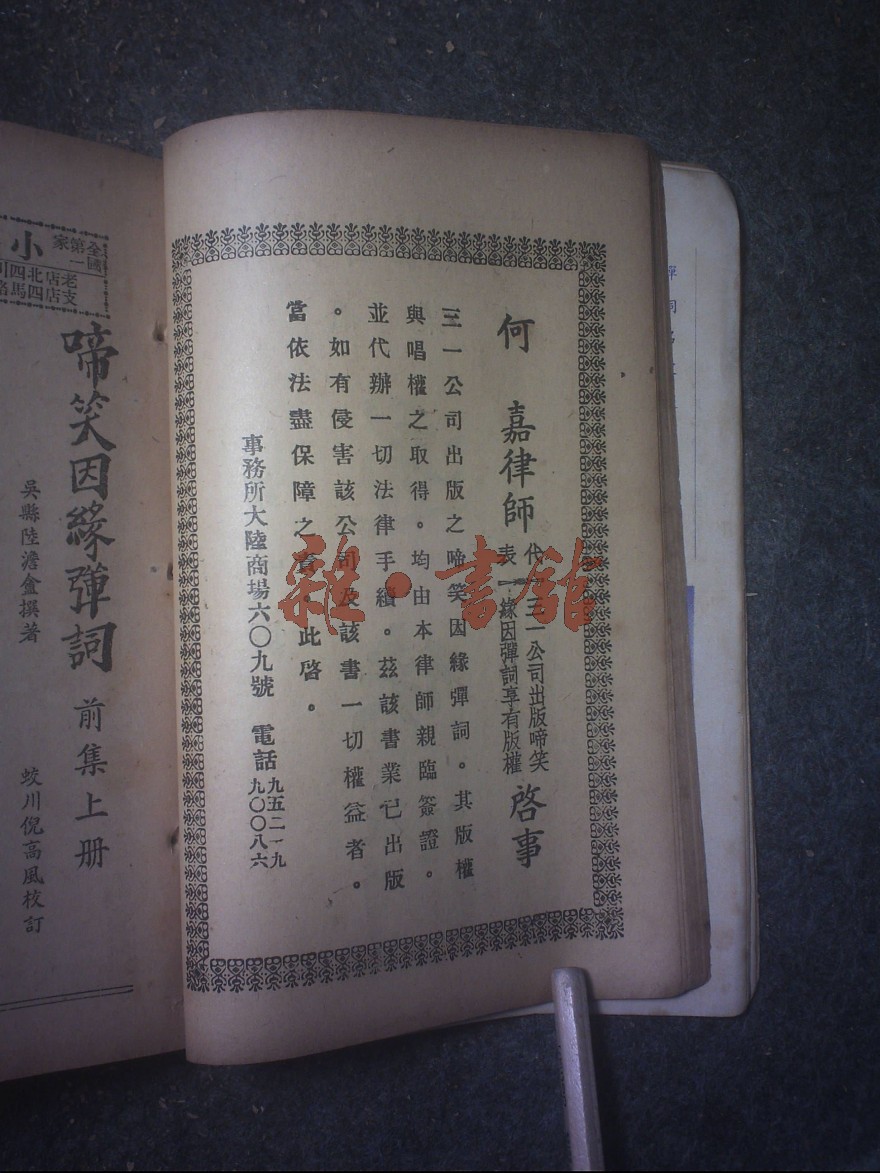 何嘉律師
代表
三一公司出版啼笑
緣因彈詞享有版權
啓事
三一公司出版之啼笑因緣彈詞。其版權
與唱權之取得。均由本律師親臨簽證。
並代辦一切法律手續。茲該書業已出版
。如有侵害該公司及該書一切權益者。
當依法盡保障之責。此啓。
事務所大陸商場六〇九號 電話
九五二一九
九〇〇八六
全國第一家
小
老店北四川
支店四馬路
啼笑因緣彈詞 前集上册
吳縣陸澹盦撰著
蛟川倪高風校訂
雜·書館